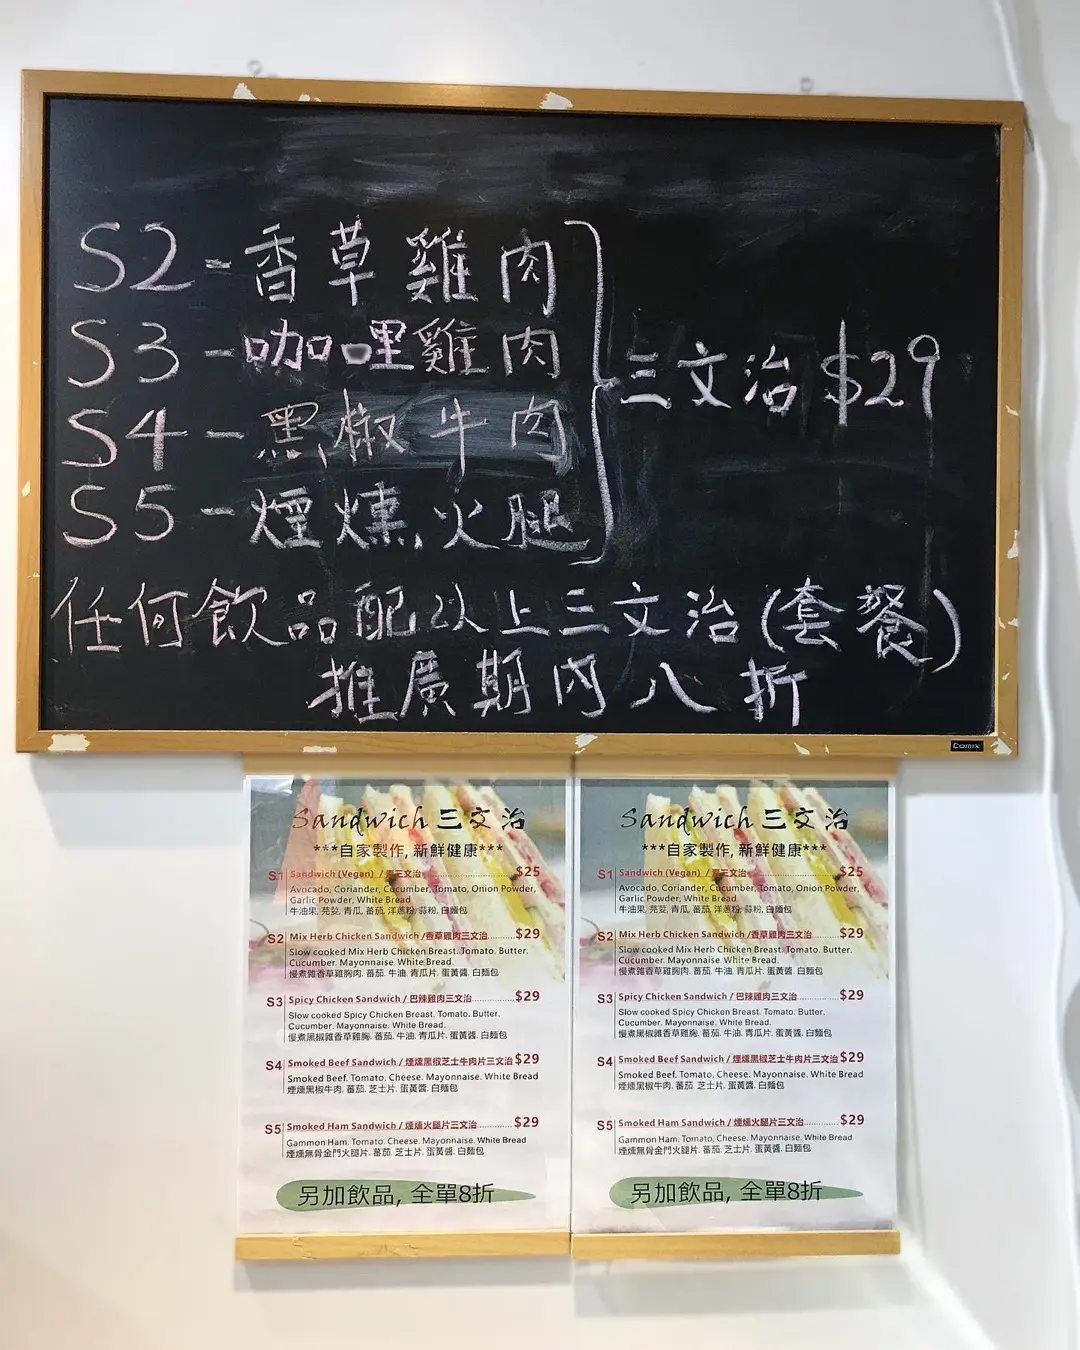 S2-香草雞肉
S3-咖哩雞肉
S4-黑椒牛肉
S5-煙燻火腿
三文治 $29
任何飲品配以上三文治(套餐)
推廣期內八折
Comix
Sandwich 三文治
***自家製作, 新鮮健康***
S1 Sandwich (Vegan) / 三文治 $25
Avocado, Coriander, Cucumber, Tomato, Onion Powder,
Garlic Powder, White Bread
牛油果, 芫荽, 青瓜, 蕃茄, 洋蔥粉, 蒜粉, 白麵包
S2 Mix Herb Chicken Sandwich /香草雞肉三文治..........$29
Slow cooked Mix Herb Chicken Breast. Tomato. Butter.
Cucumber. Mayonnaise. White Bread.
慢煮雜香草雞胸肉. 蕃茄. 牛油. 青瓜片. 蛋黃醬. 白麵包
S3 Spicy Chicken Sandwich / 巴辣雞肉三文治..........$29
Slow cooked Spicy Chicken Breast. Tomato. Butter.
Cucumber. Mayonnaise. White Bread.
慢煮黑椒雜香草雞胸. 蕃茄. 牛油. 青瓜片. 蛋黃醬. 白麵包
S4 Smoked Beef Sandwich / 煙燻黑椒芝士牛肉片三文治 $29
Smoked Beef. Tomato. Cheese. Mayonnaise. White Bread
煙燻黑椒牛肉. 蕃茄. 芝士片. 蛋黃醬. 白麵包
S5 Smoked Ham Sandwich / 煙燻火腿片三文治..........$29
Gammon Ham. Tomato. Cheese. Mayonnaise. White Bread
煙燻無骨金門火腿片. 蕃茄. 芝士片. 蛋黃醬. 白麵包
另加飲品, 全單8折
Sandwich 三文治
***自家製作, 新鮮健康***
S1 Sandwich (Vegan) / 三文治 $25
Avocado, Coriander, Cucumber, Tomato, Onion Powder,
Garlic Powder, White Bread
牛油果, 芫荽, 青瓜, 蕃茄, 洋蔥粉, 蒜粉, 白麵包
S2 Mix Herb Chicken Sandwich /香草雞肉三文治..........$29
Slow cooked Mix Herb Chicken Breast. Tomato. Butter.
Cucumber. Mayonnaise. White Bread.
慢煮雜香草雞胸肉. 蕃茄. 牛油. 青瓜片. 蛋黃醬. 白麵包
S3 Spicy Chicken Sandwich / 巴辣雞肉三文治..........$29
Slow cooked Spicy Chicken Breast. Tomato. Butter.
Cucumber. Mayonnaise. White Bread.
慢煮黑椒雜香草雞胸. 蕃茄. 牛油. 青瓜片. 蛋黃醬. 白麵包
S4 Smoked Beef Sandwich / 煙燻黑椒芝士牛肉片三文治 $29
Smoked Beef. Tomato. Cheese. Mayonnaise. White Bread
煙燻黑椒牛肉. 蕃茄. 芝士片. 蛋黃醬. 白麵包
S5 Smoked Ham Sandwich / 煙燻火腿片三文治..........$29
Gammon Ham. Tomato. Cheese. Mayonnaise. White Bread
煙燻無骨金門火腿片. 蕃茄. 芝士片. 蛋黃醬. 白麵包
另加飲品, 全單8折